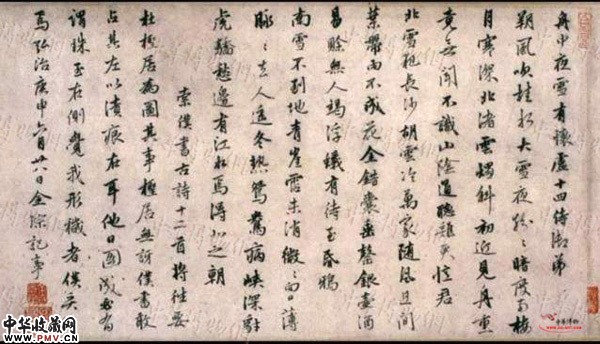 舟中夜雪有懷盧十四侍御弟
朔風吹桂水大雪夜紛〻暗度南樓
月寒深北渚雲燭斜初近見舟重
竟無聞不識山陰道聽雞更憶君
北雪犯長沙胡雲冷萬家隨風且間
葉帶雨不成花金錯囊垂罄銀壺酒
易賒無人竭浮蟻有待至昏鴉
南雪不到地青崖霑未消微〻向日薄
脈〻去人遙冬熱鴛鴦病峽深豺
虎驕愁邊有江水焉得北之朝
索僕書古詩十二首將往要
杜檉居為圖其事檉居無訝僕書敢
占其左以瀆痕在耳他日圖成必有
謂珠玉在側覺我形穢者僕笑
焉弘治庚申六月廿八日金琮記事
中华收藏网
WWW.PMV.CN